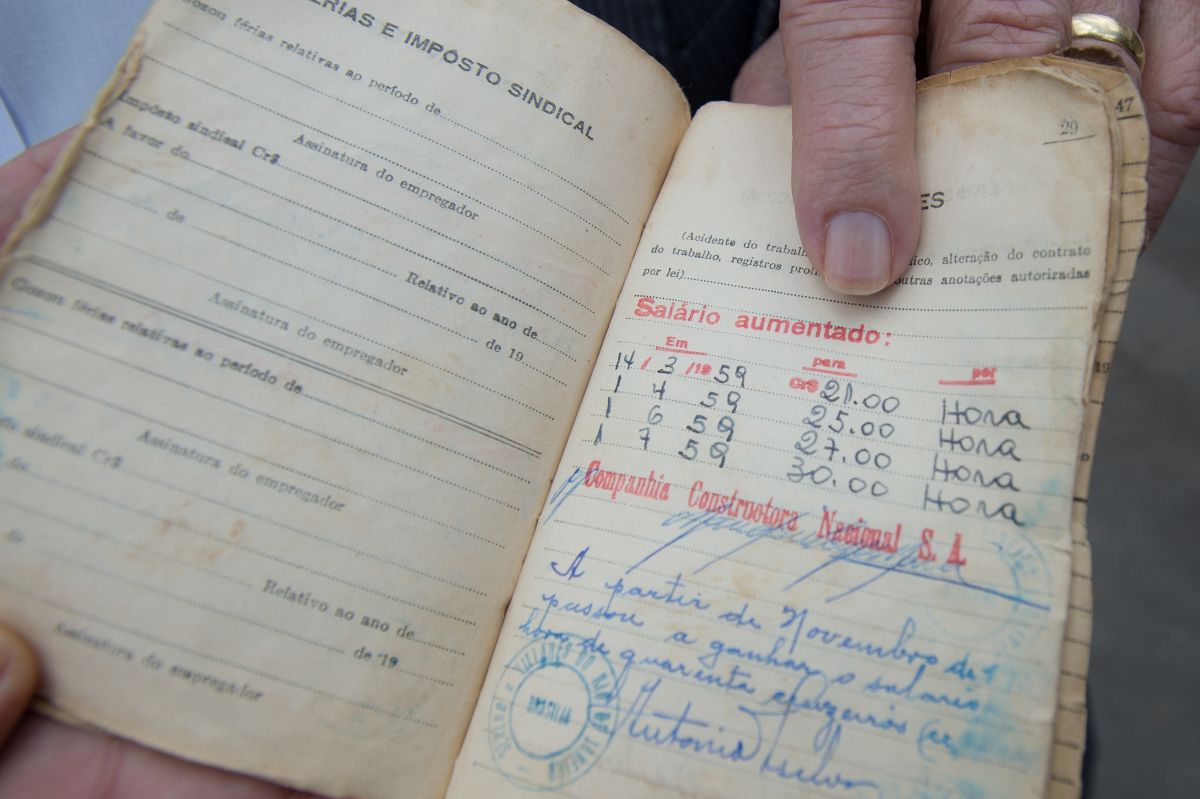 FÉRIAS E IMPÔSTO SINDICAL
Gozou férias relativas ao período de
Assinatura do empregador
Impôsto sindical Cr$
A favor do
de
Relativo ao ano de
de 19
Assinatura do empregador
Gozou férias relativas ao período de
Assinatura do empregador
sindical Cr$
de
Relativo ao ano de
de 19
Assinatura do empregador
47
29
ES
(Acidente do trabal
ico, alteração do contrato
do trabalho, registros prof
outras anotações autorizadas
por lei)
Salário aumentado:
Em para por
14 / 3 /19 59 CR$ 21.00 Hora
1 4 59 25.00 Hora
1 6 59 27.00 Hora
1 7 59 30.00 Hora
Companhia Constructora Nacional S. A.
A partir de Novembro de
passou a ganhar o salario
hora de quarenta cruzeiros